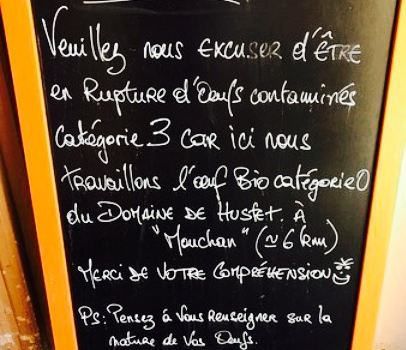 Veuillez nous excuser d'être
en Rupture d'Oeufs contaminés
catégorie 3 car ici nous
travaillons l'oeuf Bio catégorie 0
du DOMAINE DE HUSTET. À
"Mouchan" (≃ 6 km)
MERCI DE VOTRE COMPRÉHENSION
PS: Pensez à vous renseigner sur la
nature de vos Oeufs.